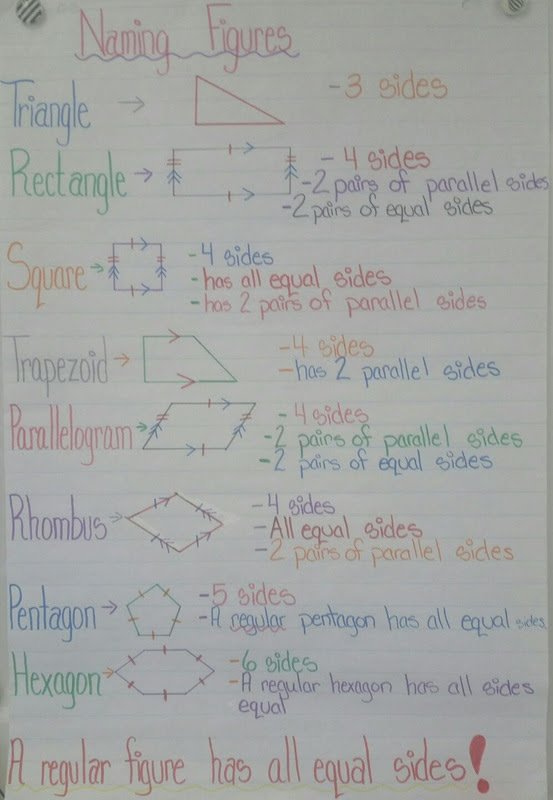 Naming Figures
Triangle → - 3 sides
Rectangle → - 4 sides
- 2 pairs of parallel sides
- 2 pairs of equal sides
Square → - 4 sides
- has all equal sides
- has 2 pairs of parallel sides
Trapezoid → - 4 sides
- has 2 parallel sides
Parallelogram → - 4 sides
- 2 pairs of parallel sides
- 2 pairs of equal sides
Rhombus → - 4 sides
- All equal sides
- 2 pairs of parallel sides
Pentagon → - 5 sides
- A regular pentagon has all equal sides
Hexagon → - 6 sides
- A regular hexagon has all sides
equal
A regular figure has all equal sides!